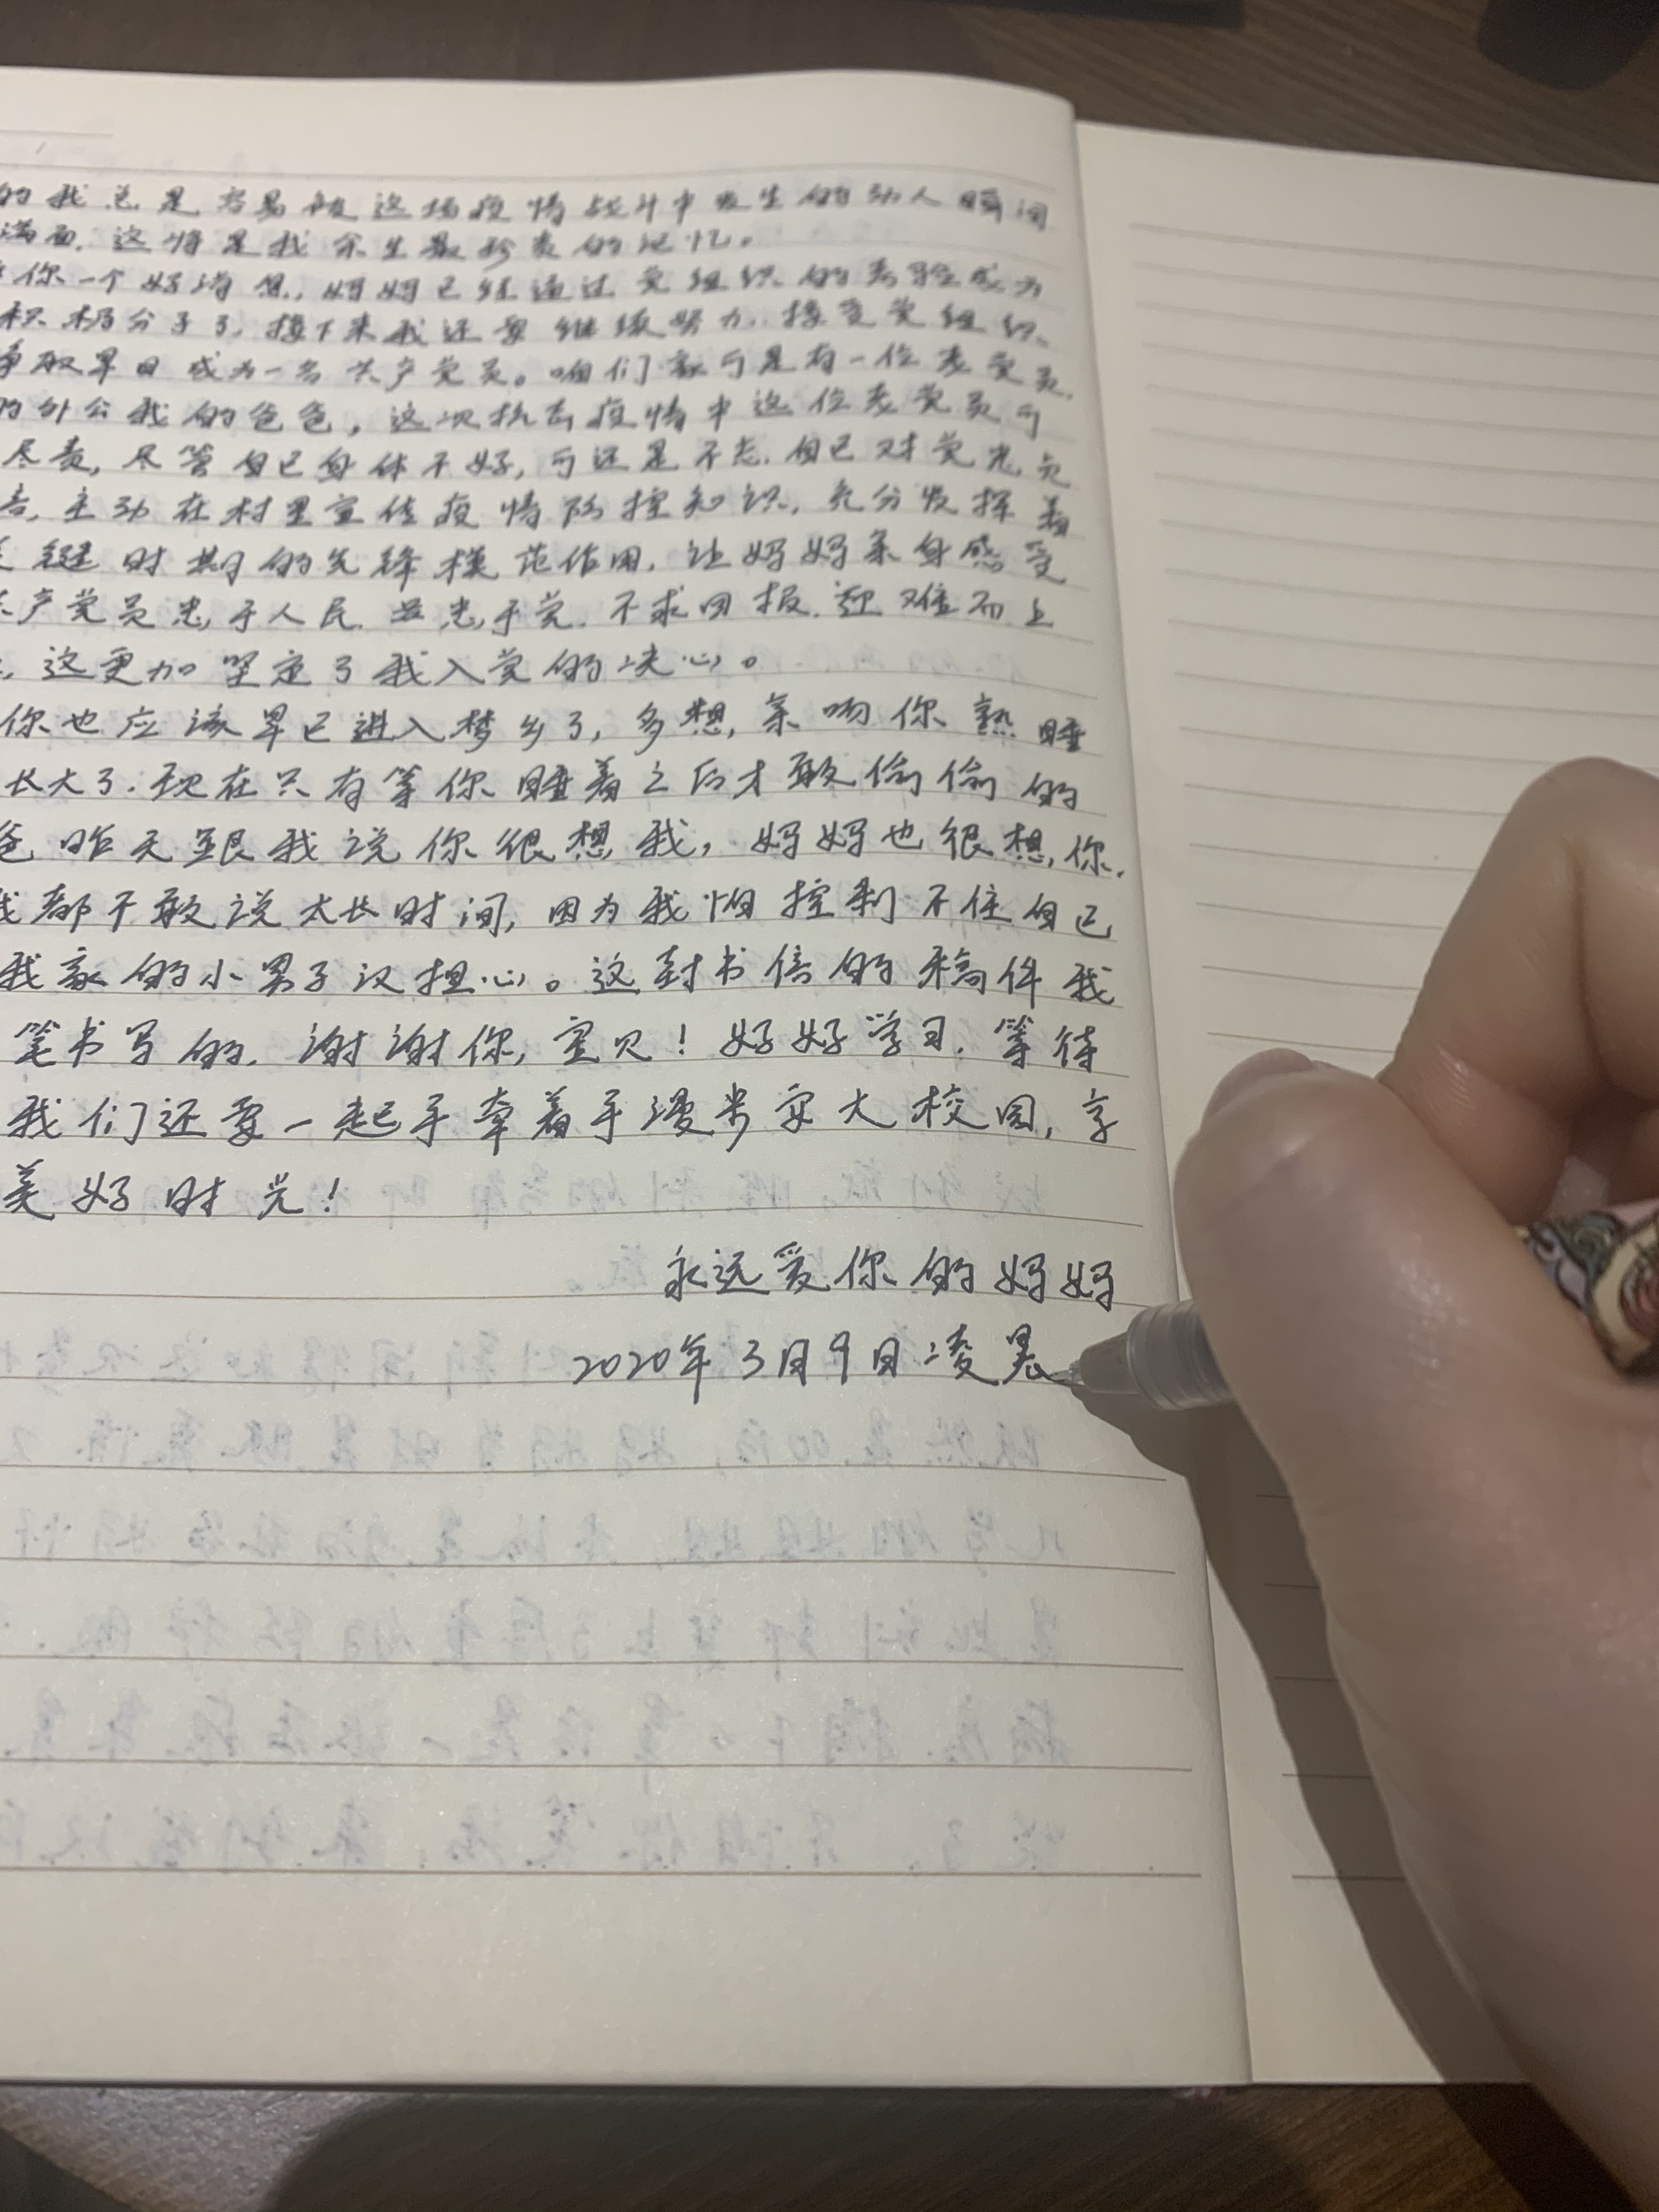 的我总是容易被这场疫情战斗中发生的动人瞬间
满面,这将是我余生最珍贵的记忆。
你一个好消息,妈妈已经通过党组织的考验成为
积极分子了,接下来我还要继续努力,接受党组织
争取早日成为一名共产党员。咱们家可是有一位老党员,
的外公我的爸爸,这次抗击疫情中这位老党员可
尽责,尽管自己身体不好,可还是不忘自己对党
主动在村里宣传疫情防控知识,充分发挥着
键时期的先锋模范作用,让妈妈亲身感受
产党员忠于人民,忠于党,不求回报,迎难而上
,这更加坚定了我入党的决心。
你也应该早已进入梦乡了,多想亲吻你熟睡
长大了.现在只有等你睡着之后才敢偷偷的
爸昨天跟我说你很想我,妈妈也很想你,
我都不敢说太长时间,因为我怕控制不住自己
我家的小男子汉担心。这封书信的稿件我
笔书写的,谢谢你,宝贝!好好学习,等待
我们还要一起手牵着手漫步安大校园,享
美好时光!
永远爱你的妈妈
2020年3月9日凌晨